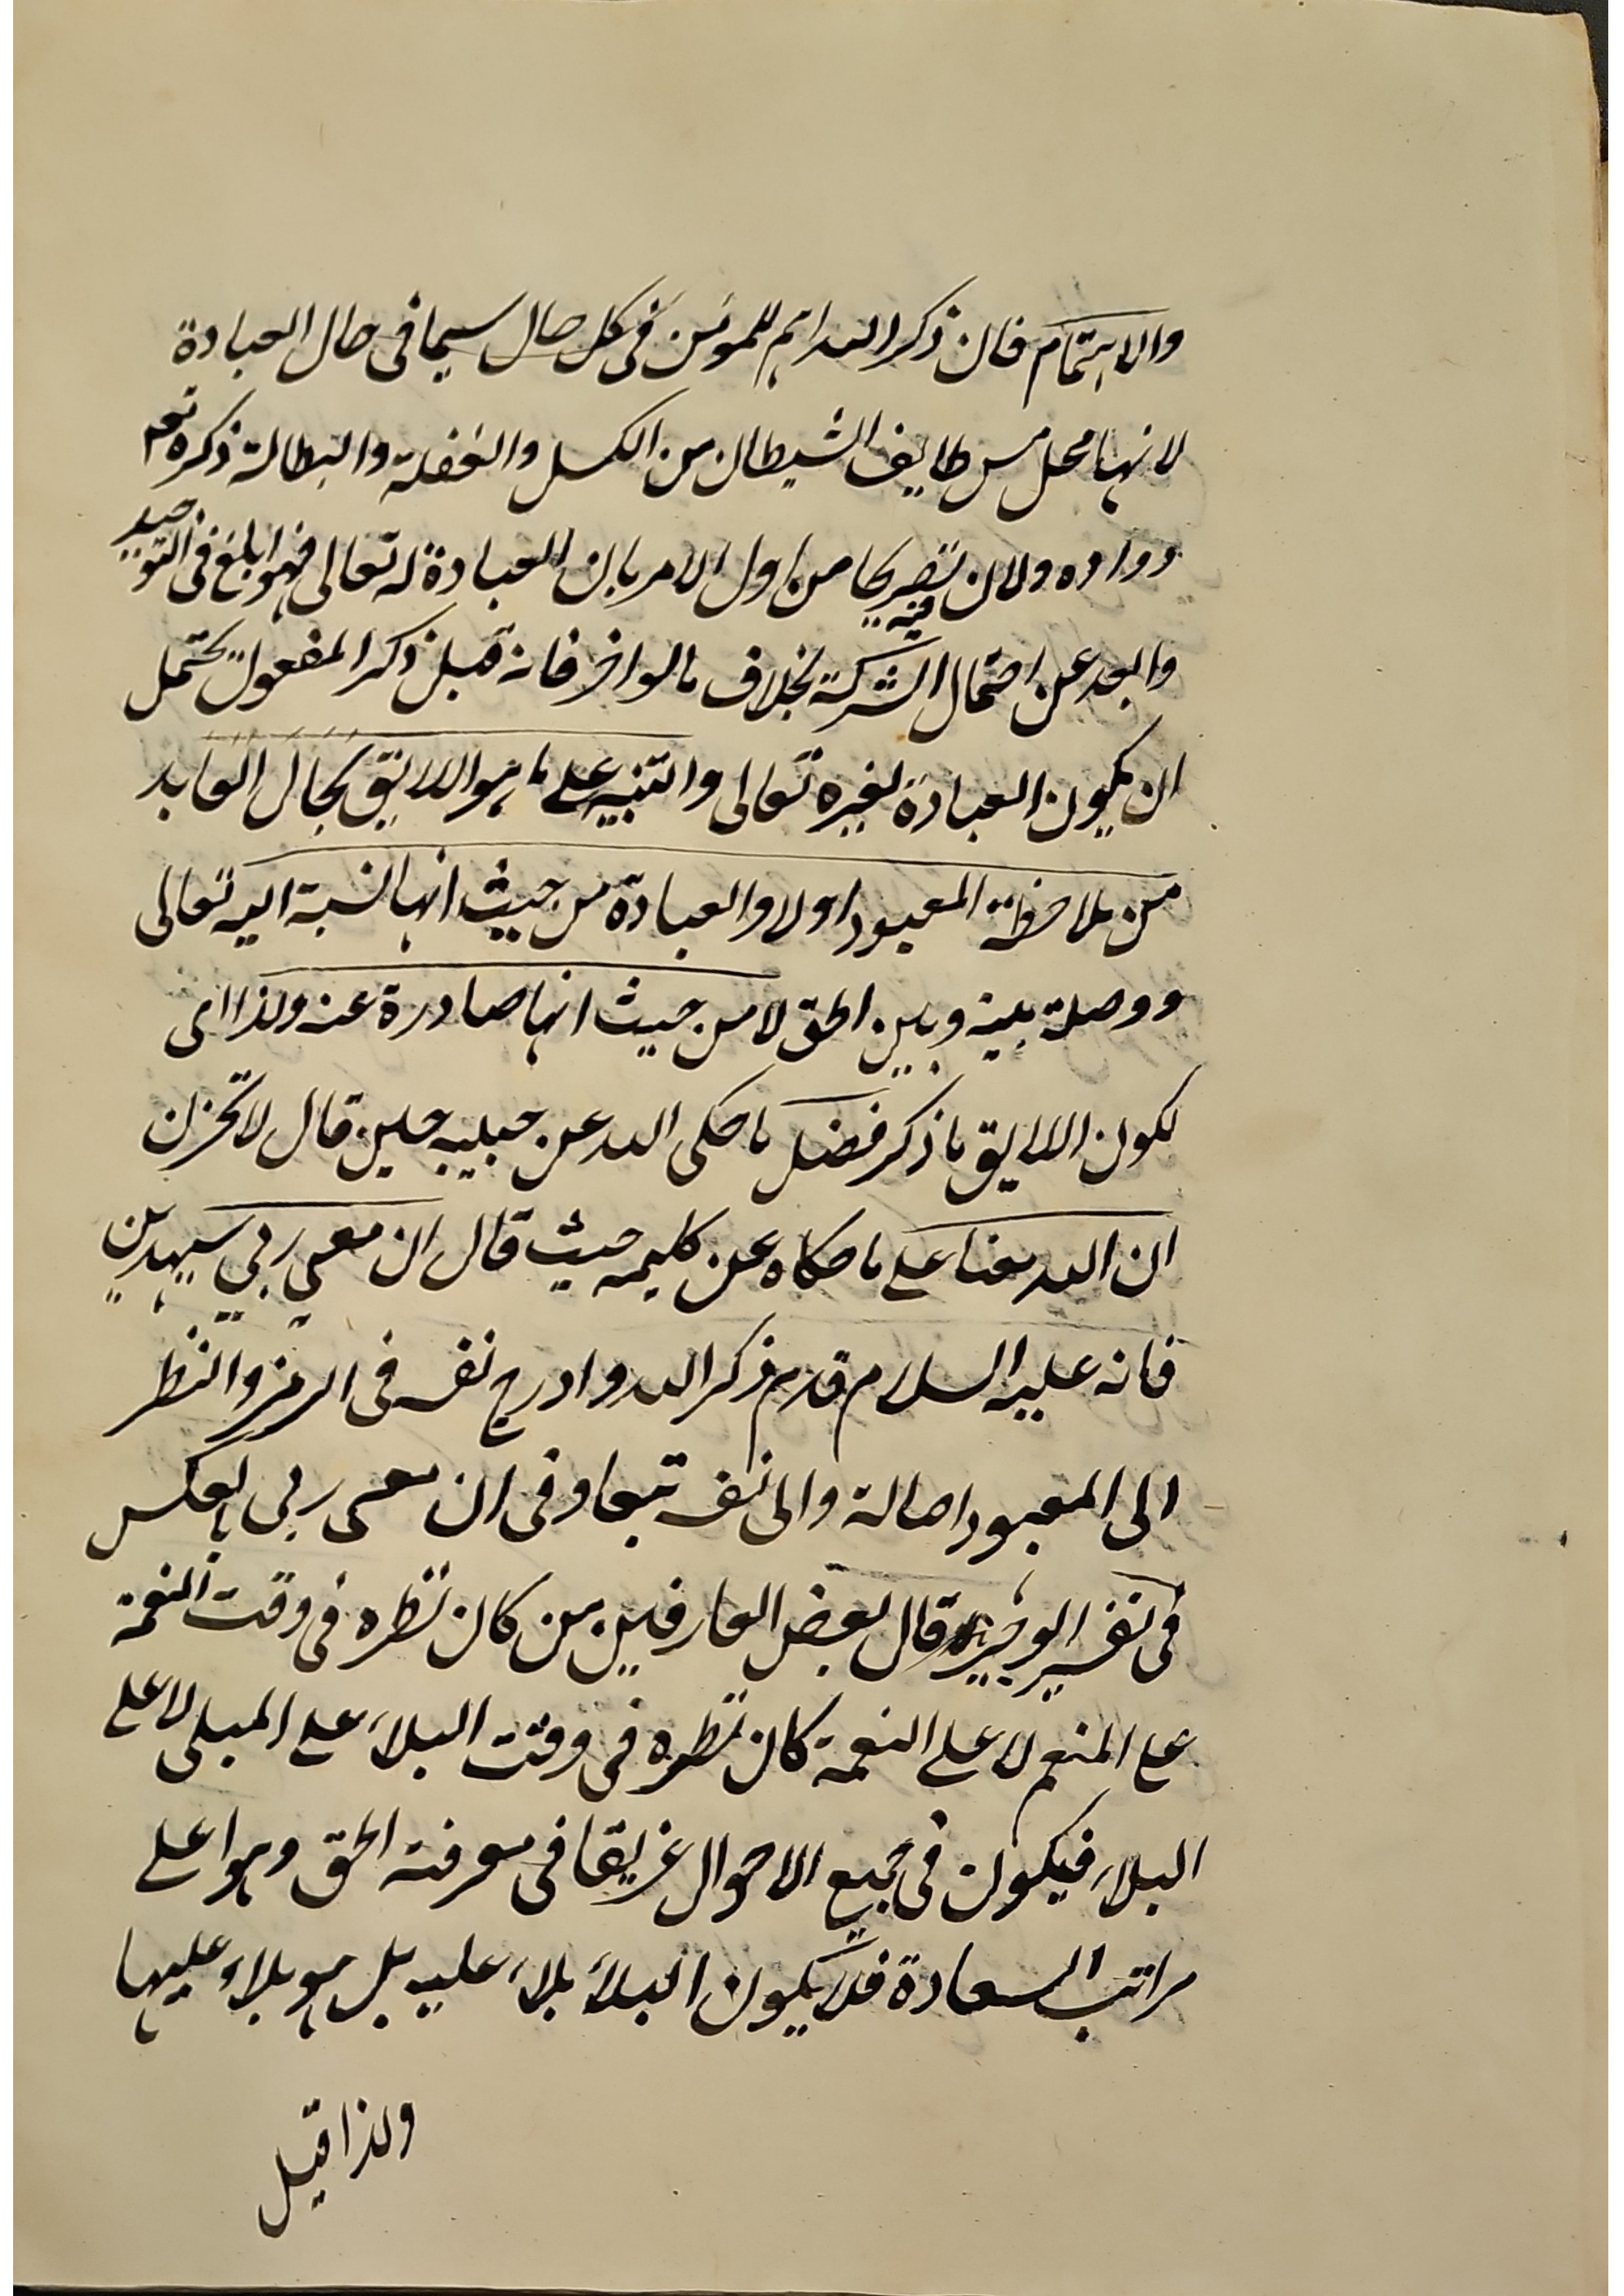 والاهتمام فان ذكر الله اهم للمؤمن فى كل حال سيما فى حال العبادة
لانها محل مس طايف الشيطان من الكسل والغفلة والبطالة ذكره تعم
دواده ولان فيه تصريحا من اول الامر بان العبادة له تعالى فهو ابلغ فى التوحيد
وابعد عن احتمال الشركة بخلاف ما لو اخر فانه قبل ذكر المفعول يحتمل
ان يكون العبادة لغيره تعالى والتنبيه على ما هو الاليق بحال العابد
من ملاحظة المعبود اولا والعبادة من حيث انها نسبة اليه تعالى
ووصلة بينه وبين الحق لا من حيث انها صادرة عنه ولذا اى
لكون الاليق ما ذكر فضل ما حكى الله عن حبيبه حين قال لا تحزن
ان الله معنا على ما حكاه عن كليمه حيث قال ان معي ربي سيهدين
فانه عليه السلام قدم ذكر الله وادرج نفسه فى الرمز والنظر
الى المعبود اصالة والى نفسه تبعا وفى ان معى ربى بالعكس
فى تفسير الوجيز قال بعض العارفين من كان نظره فى وقت النعمة
على المنعم لا على النعمة كان نظره فى وقت البلاء على المبلى لا على
البلاء فيكون فى جميع الاحوال غريقا فى معرفة الحق وهو اعلى
مراتب السعادة فلا يكون البلاء بلاء عليه بل هو بلاء عليها
ولذا قيل